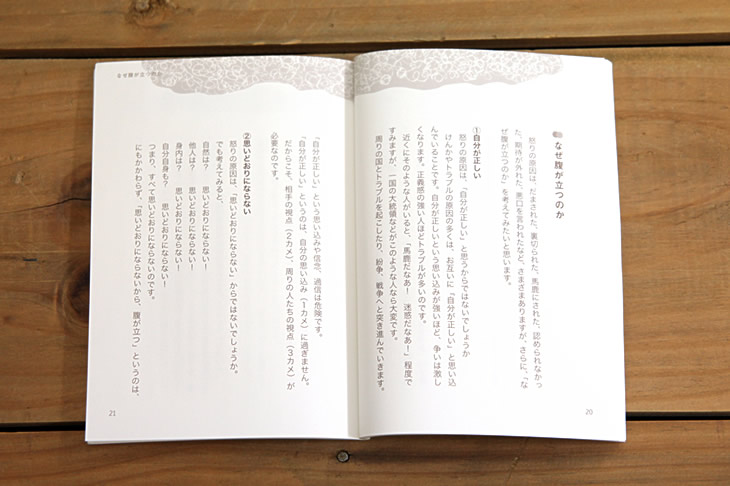 なぜ腹が立つのか
怒りの原因は、だまされた、裏切られた、馬鹿にされた、認められなかっ
た、期待が外れた、悪口を言われたなど、さまざまありますが、さらに、「な
ぜ腹が立つのか」を考えてみたいと思います。
①自分が正しい
怒りの原因は、「自分が正しい」と思うからではないでしょうか
けんかやトラブルの原因の多くは、お互いに「自分が正しい」と思い込
んでいることです。自分が正しいという思い込みが強いほど、争いは激し
くなります。正義感の強い人ほどトラブルが多いのです。
近くにそのような人がいると、「馬鹿だなあ！　迷惑だなあ！」程度で
すみますが、一国の大統領などがこのような人なら大変です。
周りの国とトラブルを起こしたり、紛争、戦争へと突き進んでいきます。
20
なぜ腹が立つのか
「自分が正しい」という思い込みや信念、過信は危険です。
「自分が正しい」というのは、自分の思い込み（1カメ）に過ぎません。
だからこそ、相手の視点（2カメ）、周りの人たちの視点（3カメ）が
必要なのです。
②思いどおりにならない
怒りの原因は、「思いどおりにならない」からではないでしょうか。
でも考えてみると、
自然は？　思いどおりにならない！
他人は？　思いどおりにならない！
身内は？　思いどおりにならない！
自分自身も？　思いどおりにならない！
つまり、すべて思いどおりにならないのです。
にもかかわらず、「思いどおりにならないから、腹が立つ」というのは、
21